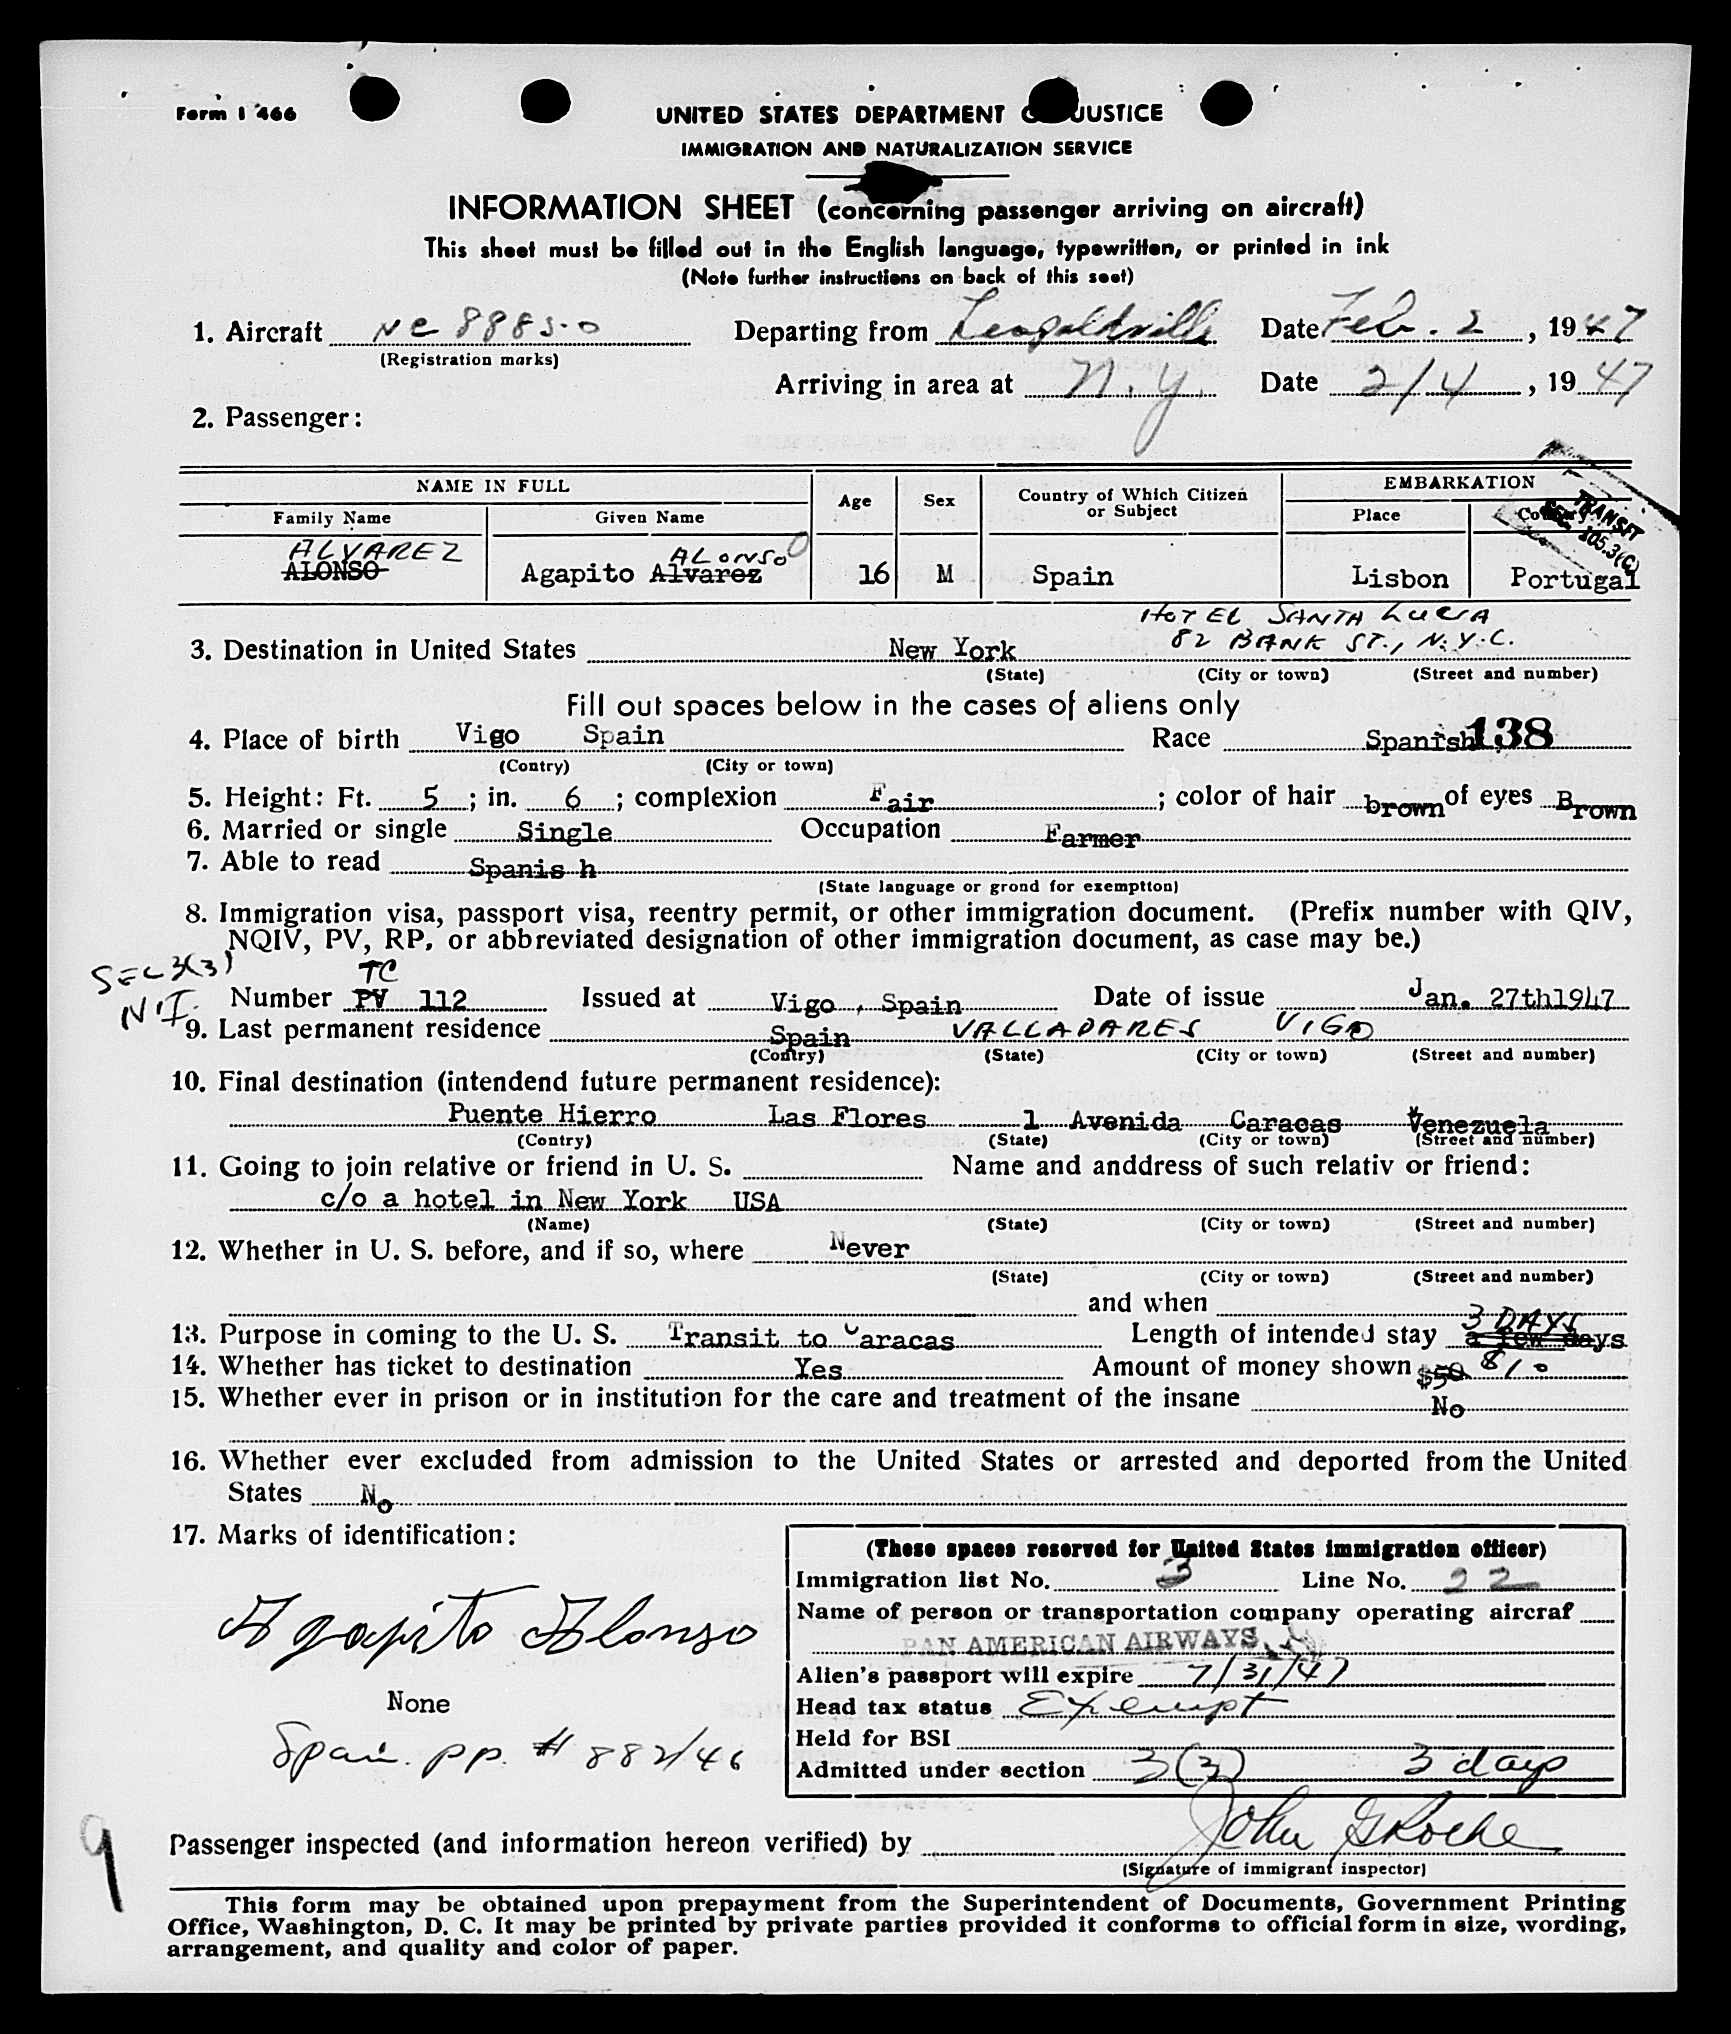 Form I 466
UNITED STATES DEPARTMENT OF JUSTICE
IMMIGRATION AND NATURALIZATION SERVICE
INFORMATION SHEET (concerning passenger arriving on aircraft)
This sheet must be filled out in the English language, typewritten, or printed in ink
(Note further instructions on back of this seet)
1. Aircraft NC 88850 Departing from Leopoldville Date Feb. 2, 1947
(Registration marks)
Arriving in area at N.Y. Date 2/4, 1947
2. Passenger:
NAME IN FULL Age Sex Country of Which Citizen or Subject EMBARKATION
Family Name Given Name Place Country
TRANSIT
SEC. 105.3(C)
ALVAREZ ALONSO
ALONSO Agapito Alvarez 16 M Spain Lisbon Portugal
HOTEL SANTA LUCIA
3. Destination in United States New York 82 BANK ST., N.Y.C.
(State) (City or town) (Street and number)
Fill out spaces below in the cases of aliens only
4. Place of birth Vigo Spain Race Spanish 138
(Contry) (City or town)
5. Height: Ft. 5; in. 6; complexion Fair; color of hair brown of eyes Brown
6. Married or single Single Occupation Farmer
7. Able to read Spanis h
(State language or grond for exemptton)
8. Immigration visa, passport visa, reentry permit, or other immigration document. (Prefix number with QIV,
NQIV, PV, RP, or abbreviated designation of other immigration document, as case may be.)
SEC 3(3) TC
N.I. Number PV 112 Issued at Vigo, Spain Date of issue Jan. 27th1947
9. Last permanent residence Spain VALLADARES VIGO
(Contry) (State) (City or town) (Street and number)
10. Final destination (intendend future permanent residence):
Puente Hierro Las Flores 1 Avenida Caracas Venezuela
(Contry) (State) (City or town) (Street and number)
11. Going to join relative or friend in U. S. Name and anddress of such relativ or friend:
c/o a hotel in New York USA
(Name) (State) (City or town) (Street and number)
12. Whether in U. S. before, and if so, where Never
(State) (City or town) (Street and number)
and when
3 DAYS
13. Purpose in coming to the U. S. Transit to Caracas Length of intended stay a few days
14. Whether has ticket to destination Yes Amount of money shown $50 810
15. Whether ever in prison or in institution for the care and treatment of the insane No
16. Whether ever excluded from admission to the United States or arrested and deported from the United
States No
17. Marks of identification:
Agapito Alonso
None
Spain. pp. # 882/46
(These spaces reserved for United States immigration officer)
Immigration list No. 3 Line No. 22
Name of person or transportation company operating aircraf
PAN AMERICAN AIRWAYS
Alien's passport will expire 7/31/47
Head tax status Exempt
Held for BSI
Admitted under section 3(3) 3 days
9
Passenger inspected (and information hereon verified) by John G Roche
(Signature of immigrant inspector)
This form may be obtained upon prepayment from the Superintendent of Documents, Government Printing
Office, Washington, D. C. It may be printed by private parties provided it conforms to official form in size, wording,
arrangement, and quality and color of paper.